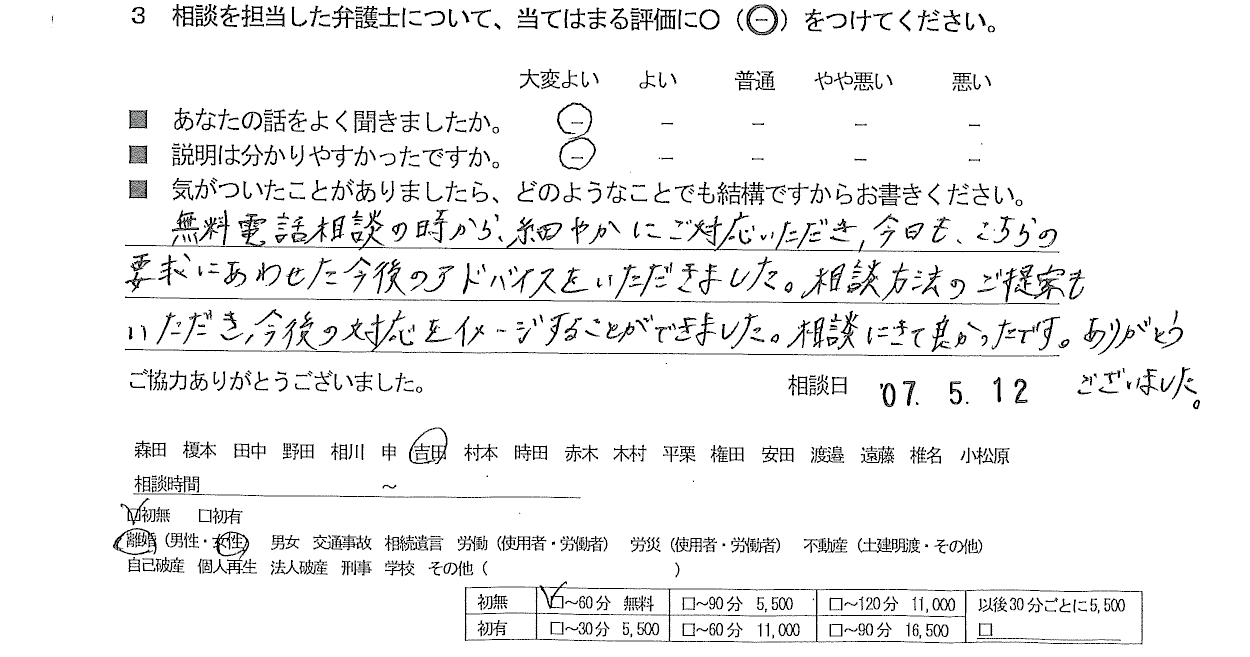 3 相談を担当した弁護士について、当てはまる評価に○（㊀）をつけてください。
大変よい よい 普通 やや悪い 悪い
■ あなたの話をよく聞きましたか。 － － － － －
■ 説明は分かりやすかったですか。 － － － － －
■ 気がついたことがありましたら、どのようなことでも結構ですからお書きください。
無料電話相談の時から、細やかにご対応いただき、今日も、こちらの
要求にあわせた今後のアドバイスをいただきました。相談方法のご提案も
いただき、今後の対応をイメージすることができました。相談にきて良かったです。ありがとう
ございました。
ご協力ありがとうございました。 相談日 '07. 5. 12
森田 榎本 田中 野田 相川 申 吉田 村本 時田 赤木 木村 平栗 権田 安田 渡邉 遠藤 椎名 小松原
相談時間 ～
☑初無 □初有
離婚（男性・女性） 男女 交通事故 相続遺言 労働（使用者・労働者） 労災（使用者・労働者） 不動産（土建明渡・その他）
自己破産 個人再生 法人破産 刑事 学校 その他（ ）
初無 ☑～60分 無料 □～90分 5,500 □～120分 11,000 以後30分ごとに5,500
初有 □～30分 5,500 □～60分 11,000 □～90分 16,500 □